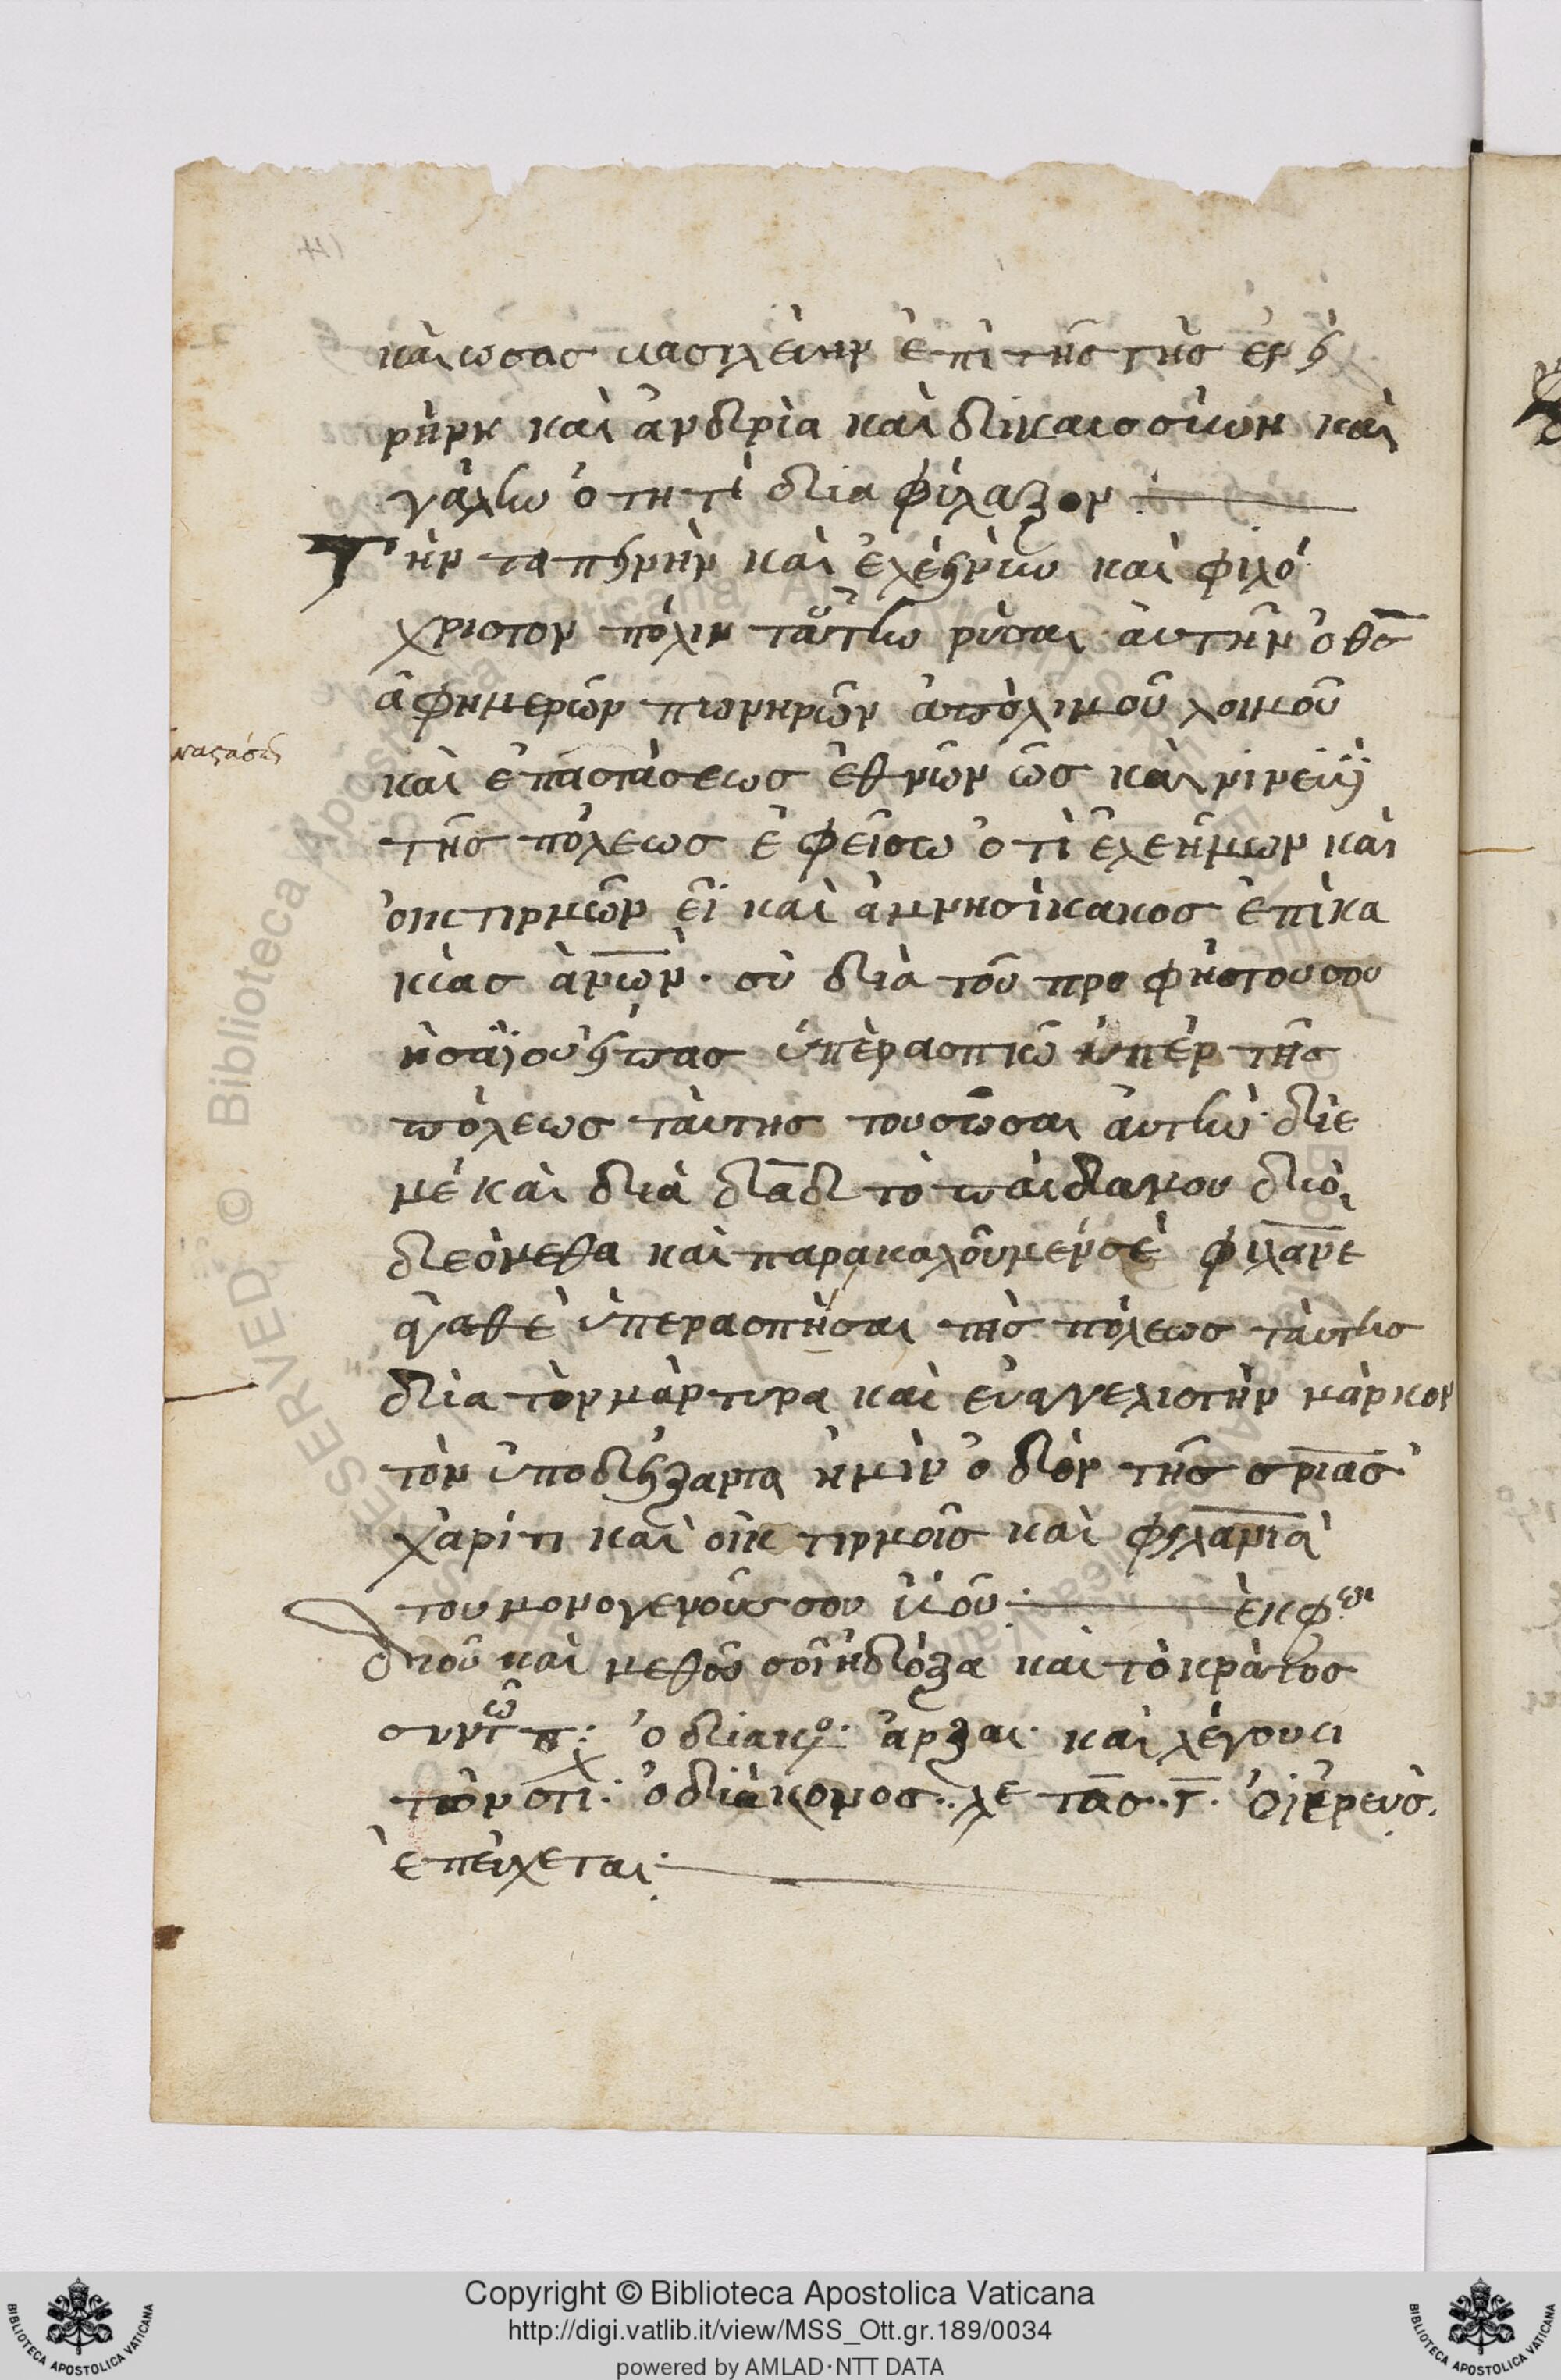 καὶ ωσας βασιλεύειν ἐπὶ τῆς γῆς ἐν εἰ
ρήνη καὶ ἀνδρία καὶ δικαιοσύνη καὶ
γαλήνη ὁ τη τὶ δια φύλαξον
Τὴν ταπεινὴν καὶ ἐλέεινην καὶ φιλό
χριστον πόλιν ταύτην ρύσαι ἀυτὴν ὁ θς
ἀφημερῶν πωνηρῶν ἀπὸ λιμοῦ λοιμοῦ
ναςάσε
καὶ ἐπαστάσεως ἐθνῶν ὡς καὶ νινευὴ
τῆς πόλεως ἐφείσω ὁτὶ ἐλεήμων καὶ
οικτιρμῶν εῖ καὶ ἀμνησίκακος ἐπὶ κα
κίας ἀνῶν. σὺ διὰ τοῦ προφήτου σου
ησαΐου εἶπας ὑπὲρασπιῶ ὑπὲρ τῆς
πόλεως τάυτης του σῶσαι ἀυτὴν δι ε
μέ καὶ διὰ δαδ τὸ παιδα μου διὸ
δεόμεθα καὶ παρακαλοῦμέν σὲ φιλανε
ἀγαθὲ ὑπερασπῆσαι τῆς πόλεως τάυτης
δια τὸν μάρτυρα καὶ εὐαγγελιστὴν μάρκον
τὸν ὑποδείξαντα ἡμὶν ὁδὸν τῆς σριας
χάριτι καὶ οἰκτιρμοῖς καὶ φιλανιὰ
του μονογενοῦς σου ὑιοῦ ἐκφω
δι οῦ καὶ μεθοῦ σοὶ ἡ δόξα καὶ τὸ κράτος
συν τῶ π: ὁ διακο: ἄρξαι· καὶ λέγουσι
τὸν στι: ὁ διάκονος: λε τας. γ. ὁ ἱερευς.
ἐπεύχεται:
Copyright © Biblioteca Apostolica Vaticana
http://digi.vatlib.it/view/MSS_Ott.gr.189/0034
powered by AMLAD·NTT DATA